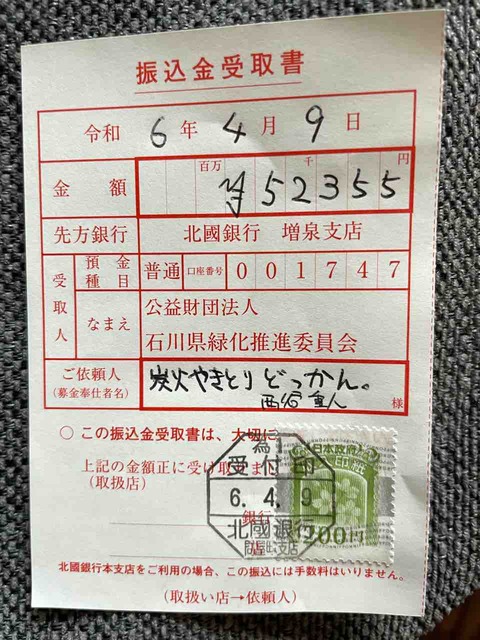 振込金受取書
令和 6 年 4 月 9 日
金額 百万 千 円 ¥52355
先方銀行 北國銀行 増泉支店
受取人 預金種目 普通 口座番号 0 0 1 7 4 7
なまえ 公益財団法人
石川県緑化推進委員会
ご依頼人 炭火やきとり どっかん。
(募金奉仕者名) 様
○ この振込金受取書は、大切に
上記の金額正に受け取りま
(取扱店)
銀行
店
為
受付印
6.4.9
北國銀行
支店
日本政府
200円
北國銀行本支店をご利用の場合、この振込には手数料はいりません。
(取扱い店→依頼人)